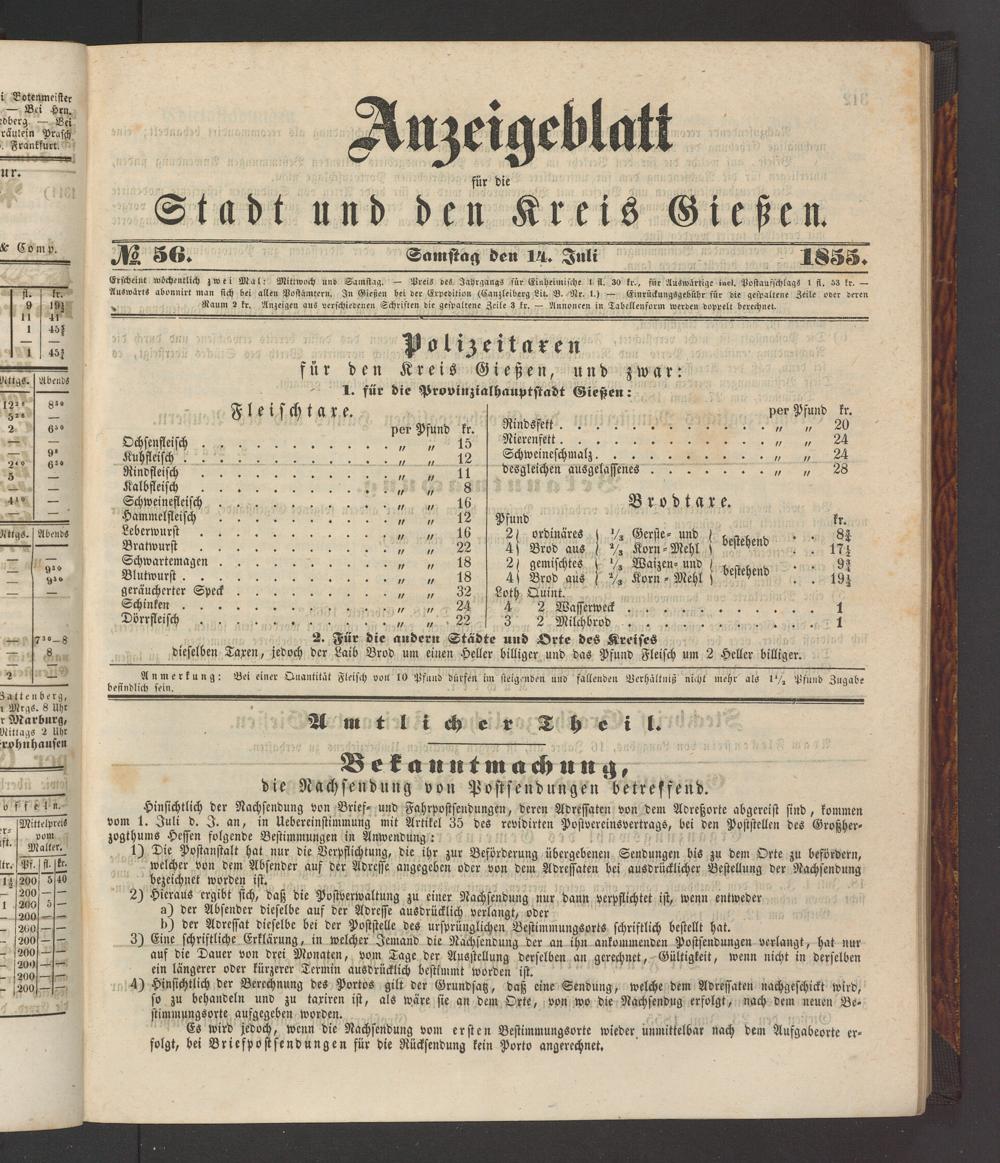 i Botenmeister
— Bei Hrn.
dberg — Bei
räulein Prasch
. Frankfurt.
ur.
& Comp.
fl. kr.
9 19½
11 41
1 45¾
— —
1 45¾
Mttgs. Abends
8³⁰
6³⁰
Mttgs. Abends
7³⁰—8
8
2 —
Battenberg,
Mrgs. 8 Uhr
r Marburg,
Mittags 2 Uhr
rohnhausen
offeln.
Mittelpreis
vom
Malter.
Pf. fl. kr.
200 5 40
200 — —
200 5 —
200 — —
200 — —
200 — —
200 — —
200 — —
Anzeigeblatt
für die
Stadt und den Kreis Gießen.
№ 56. Samstag den 14. Juli 1855.
Erscheint wöchentlich zwei Mal: Mittwoch und Samstag. — Preis des Jahrgangs für Einheimische 1 fl. 30 kr., für Auswärtige incl. Postaufschlags 1 fl. 53 kr. —
Auswärts abonnirt man sich bei allen Postämtern. In Gießen bei der Expedition (Canzleiberg Lit. B. Nr. 1.) — Einrückungsgebühr für die gespaltene Zeile oder deren
Raum 2 kr. Anzeigen aus verschiedenen Schriften die gespaltene Zeile 3 kr. — Annoncen in Tabellenform werden doppelt berechnet.
Polizeitaxen
für den Kreis Gießen, und zwar:
1. für die Provinzialhauptstadt Gießen:
Fleischtaxe.
per Pfund kr.
Ochsenfleisch . . . . . . . . . . „ „ 15
Kuhfleisch . . . . . . . . . . „ „ 12
Rindfleisch . . . . . . . . . . „ „ 11
Kalbfleisch . . . . . . . . . . „ „ 8
Schweinefleisch . . . . . . . . . . „ „ 16
Hammelfleisch . . . . . . . . . . „ „ 12
Leberwurst . . . . . . . . . . „ „ 16
Bratwurst . . . . . . . . . . „ „ 22
Schwartemagen . . . . . . . . . . „ „ 18
Blutwurst . . . . . . . . . . „ „ 18
geräucherter Speck . . . . . . . . . „ „ 32
Schinken . . . . . . . . . . „ „ 24
Dörrfleisch . . . . . . . . . . „ „ 22
per Pfund kr.
Rindsfett . . . . . . . . . . „ „ 20
Nierenfett . . . . . . . . . . „ „ 24
Schweineschmalz . . . . . . . . . „ „ 24
desgleichen ausgelassenes . . . . . . . „ „ 28
Brodtaxe.
Pfund kr.
2 } ordinäres { ⅓ Gerste- und } bestehend . . 8¾
4 } Brod aus { ⅔ Korn-Mehl } . . 17½
2 } gemischtes { ⅓ Waizen- und } bestehend . . 9¾
4 } Brod aus { ⅔ Korn-Mehl } . . 19½
Loth Quint.
4 2 Wasserweck . . . . . . . . 1
3 2 Milchbrod . . . . . . . . 1
2. Für die andern Städte und Orte des Kreises
dieselben Taxen, jedoch der Laib Brod um einen Heller billiger und das Pfund Fleisch um 2 Heller billiger.
Anmerkung: Bei einer Quantität Fleisch von 10 Pfund dürfen im steigenden und fallenden Verhältniß nicht mehr als 1½ Pfund Zugabe
befindlich sein.
Amtlicher Theil.
Bekanntmachung,
die Nachsendung von Postsendungen betreffend.
Hinsichtlich der Nachsendung von Brief- und Fahrpostsendungen, deren Adressaten von dem Adreßorte abgereist sind, kommen
vom 1. Juli d. J. an, in Uebereinstimmung mit Artikel 35 des revidirten Postvereinsvertrags, bei den Poststellen des Großher-
zogthums Hessen folgende Bestimmungen in Anwendung:
1) Die Postanstalt hat nur die Verpflichtung, die ihr zur Beförderung übergebenen Sendungen bis zu dem Orte zu befördern,
welcher von dem Absender auf der Adresse angegeben oder von dem Adressaten bei ausdrücklicher Bestellung der Nachsendung
bezeichnet worden ist.
2) Hieraus ergibt sich, daß die Postverwaltung zu einer Nachsendung nur dann verpflichtet ist, wenn entweder
a) der Absender dieselbe auf der Adresse ausdrücklich verlangt, oder
b) der Adressat dieselbe bei der Poststelle des ursprünglichen Bestimmungsorts schriftlich bestellt hat.
3) Eine schriftliche Erklärung, in welcher Jemand die Nachsendung der an ihn ankommenden Postsendungen verlangt, hat nur
auf die Dauer von drei Monaten, vom Tage der Ausstellung derselben an gerechnet, Gültigkeit, wenn nicht in derselben
ein längerer oder kürzerer Termin ausdrücklich bestimmt worden ist.
4) Hinsichtlich der Berechnung des Portos gilt der Grundsatz, daß eine Sendung, welche dem Adressaten nachgeschickt wird,
so zu behandeln und zu taxiren ist, als wäre sie an dem Orte, von wo die Nachsendug erfolgt, nach dem neuen Be-
stimmungsorte aufgegeben worden.
Es wird jedoch, wenn die Nachsendung vom ersten Bestimmungsorte wieder unmittelbar nach dem Aufgabeorte er-
folgt, bei Briefpostsendungen für die Rücksendung kein Porto angerechnet.